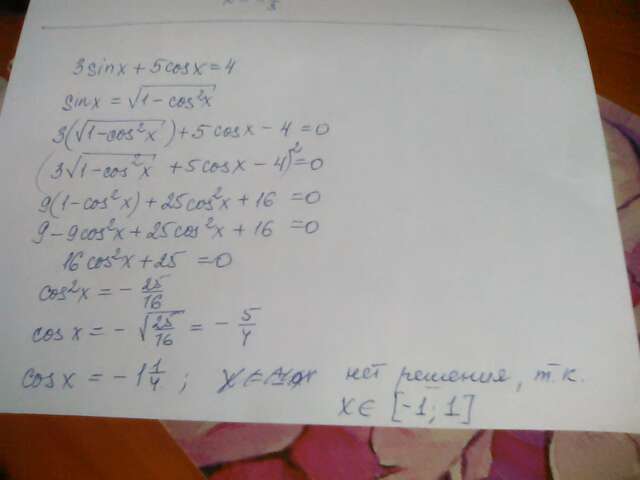 3sinx + 5cosx = 4
sinx = √(1 - cos²x)
3(√(1-cos²x)) + 5cosx - 4 = 0
(3√(1-cos²x) + 5cosx - 4)² = 0
9(1-cos²x) + 25cos²x + 16 = 0
9 - 9cos²x + 25cos²x + 16 = 0
16cos²x + 25 = 0
cos²x = - 25/16
cosx = - √(25/16) = - 5/4
cosx = -1 1/4 ; нет решения, т.к.
x ∈ [-1; 1]